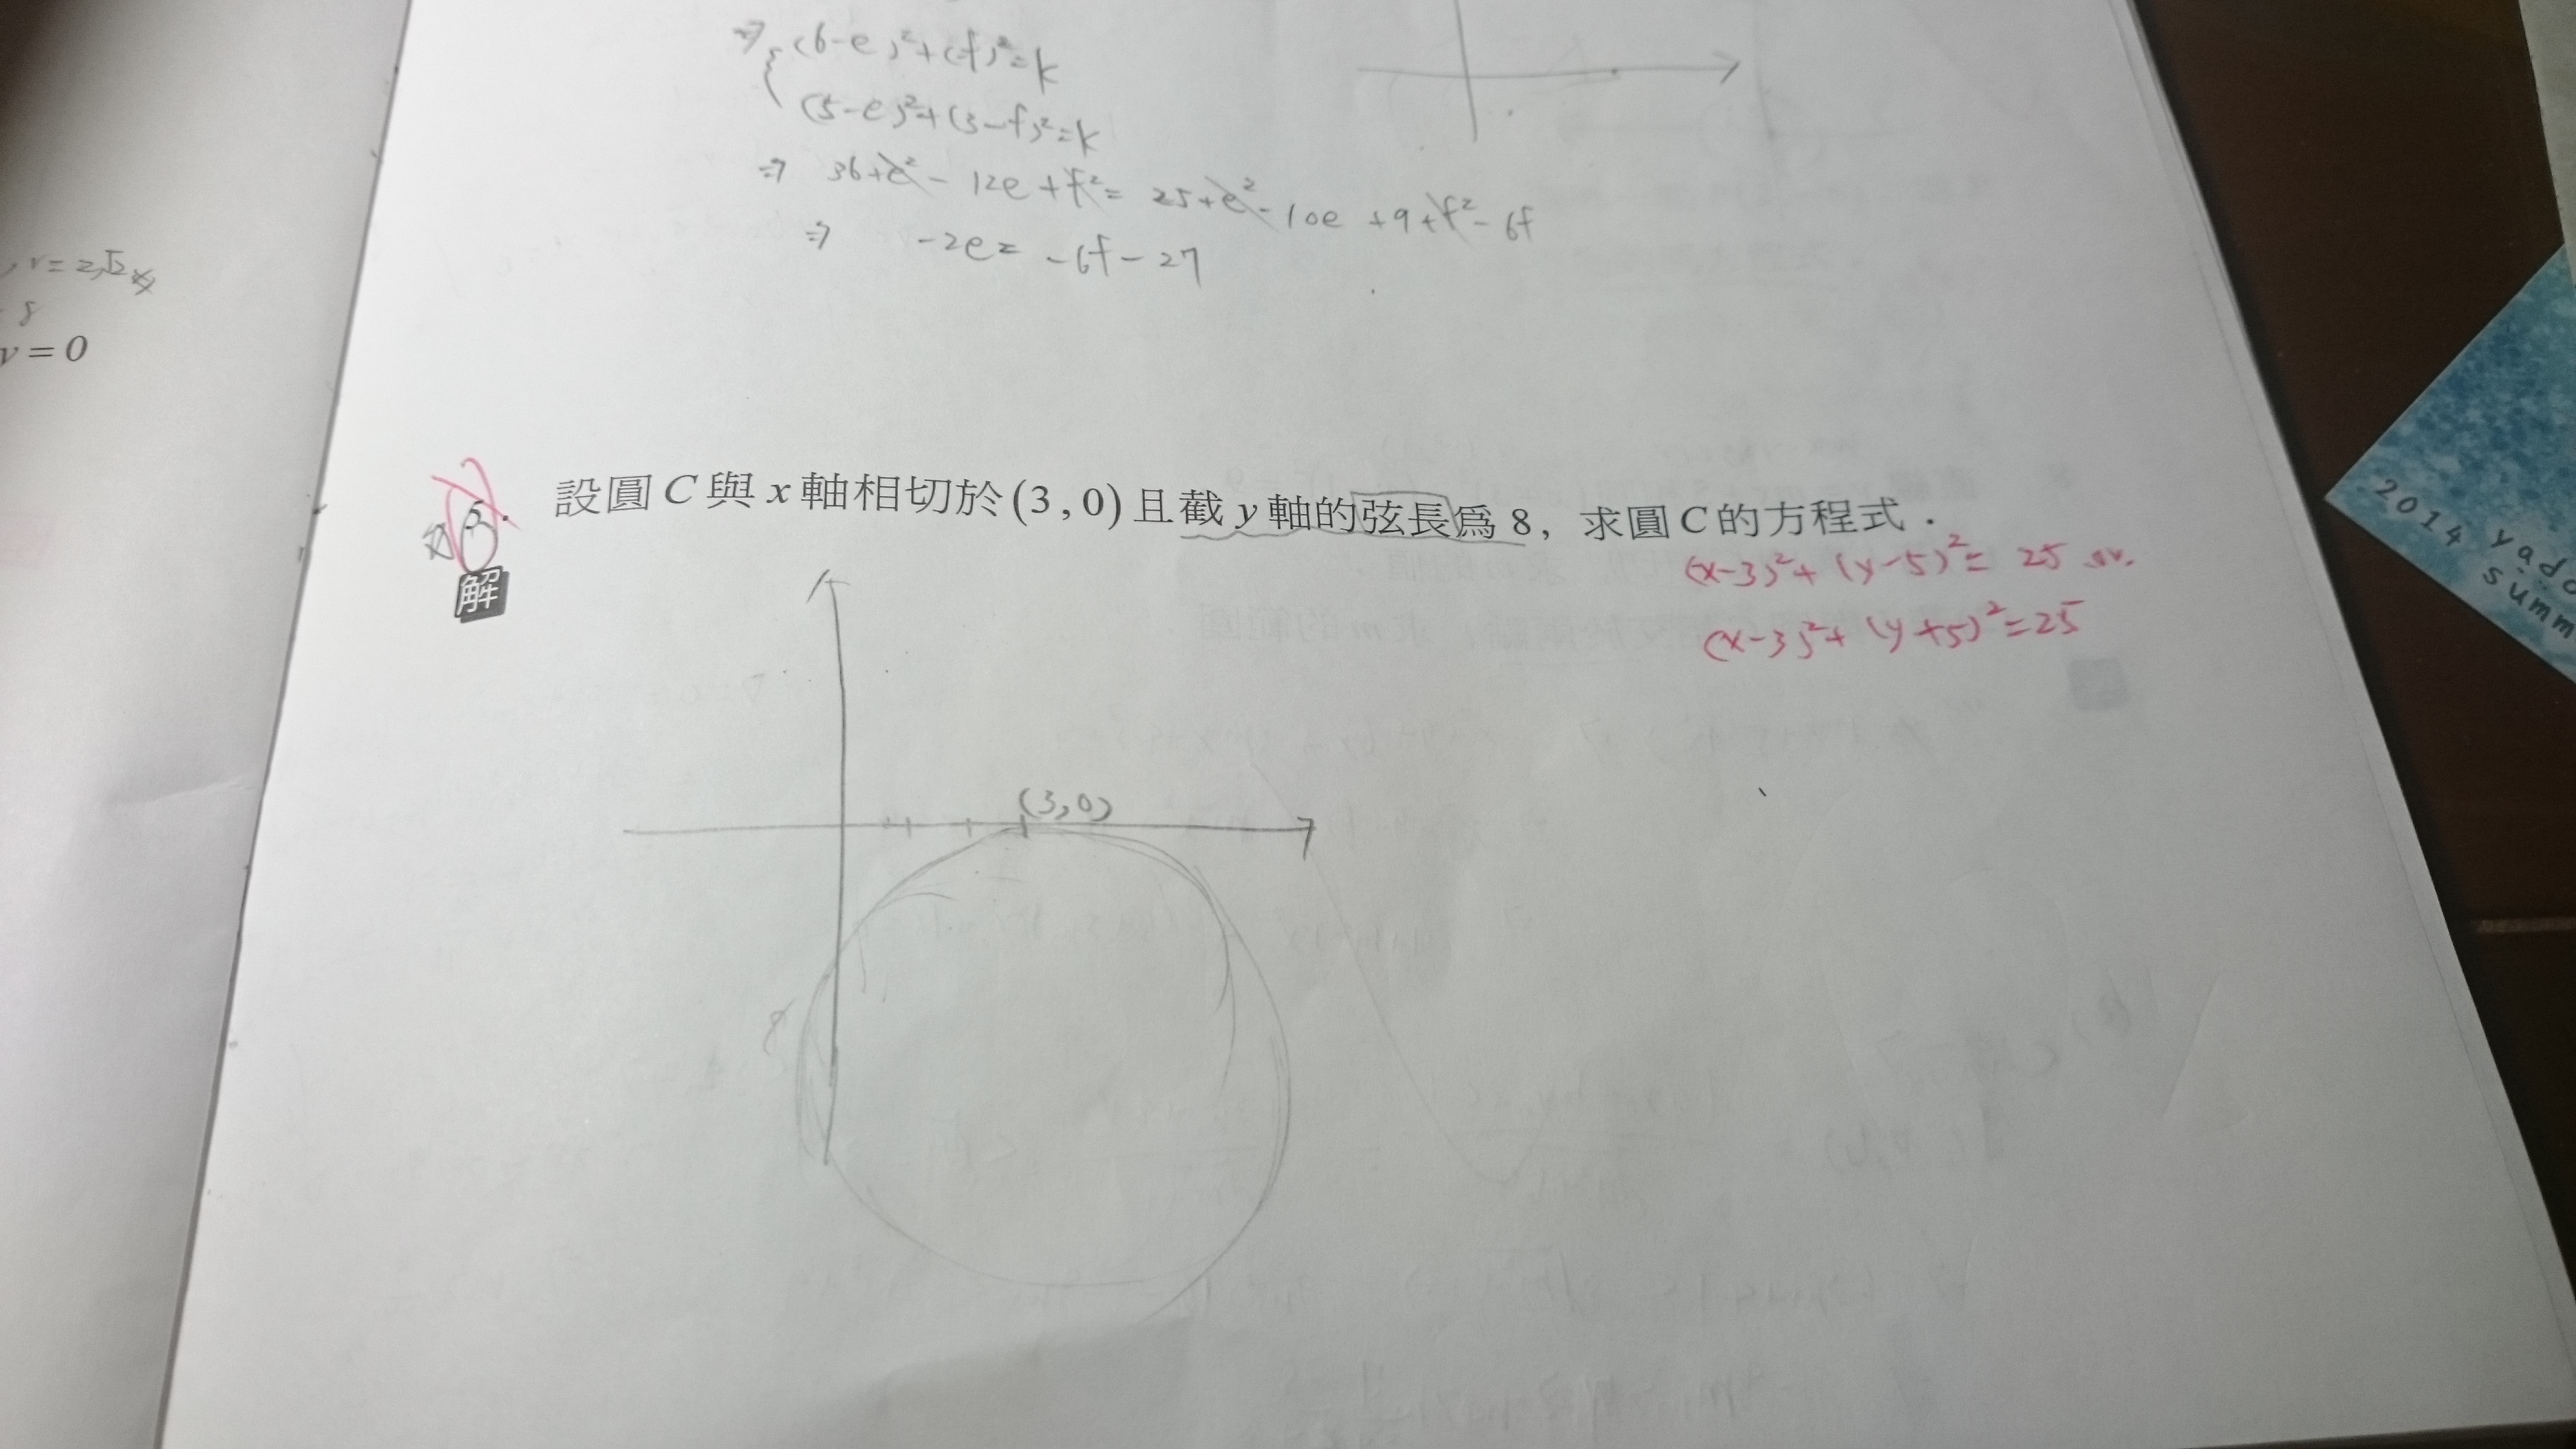 ⇒ { (6-e)²+(f)²=k
(5-e)²+(3-f)²=k
⇒ 36+e²-12e+f²=25+e²-10e+9+f²-6f
⇒ -2e=-6f-27
, r=2√2
8
v=0
5. 設圓C與x軸相切於(3,0)且截y軸的弦長為8，求圓C的方程式．
(x-3)²+(y-5)²=25 or.
(x-3)²+(y+5)²=25
解
(3,0)
8
2014